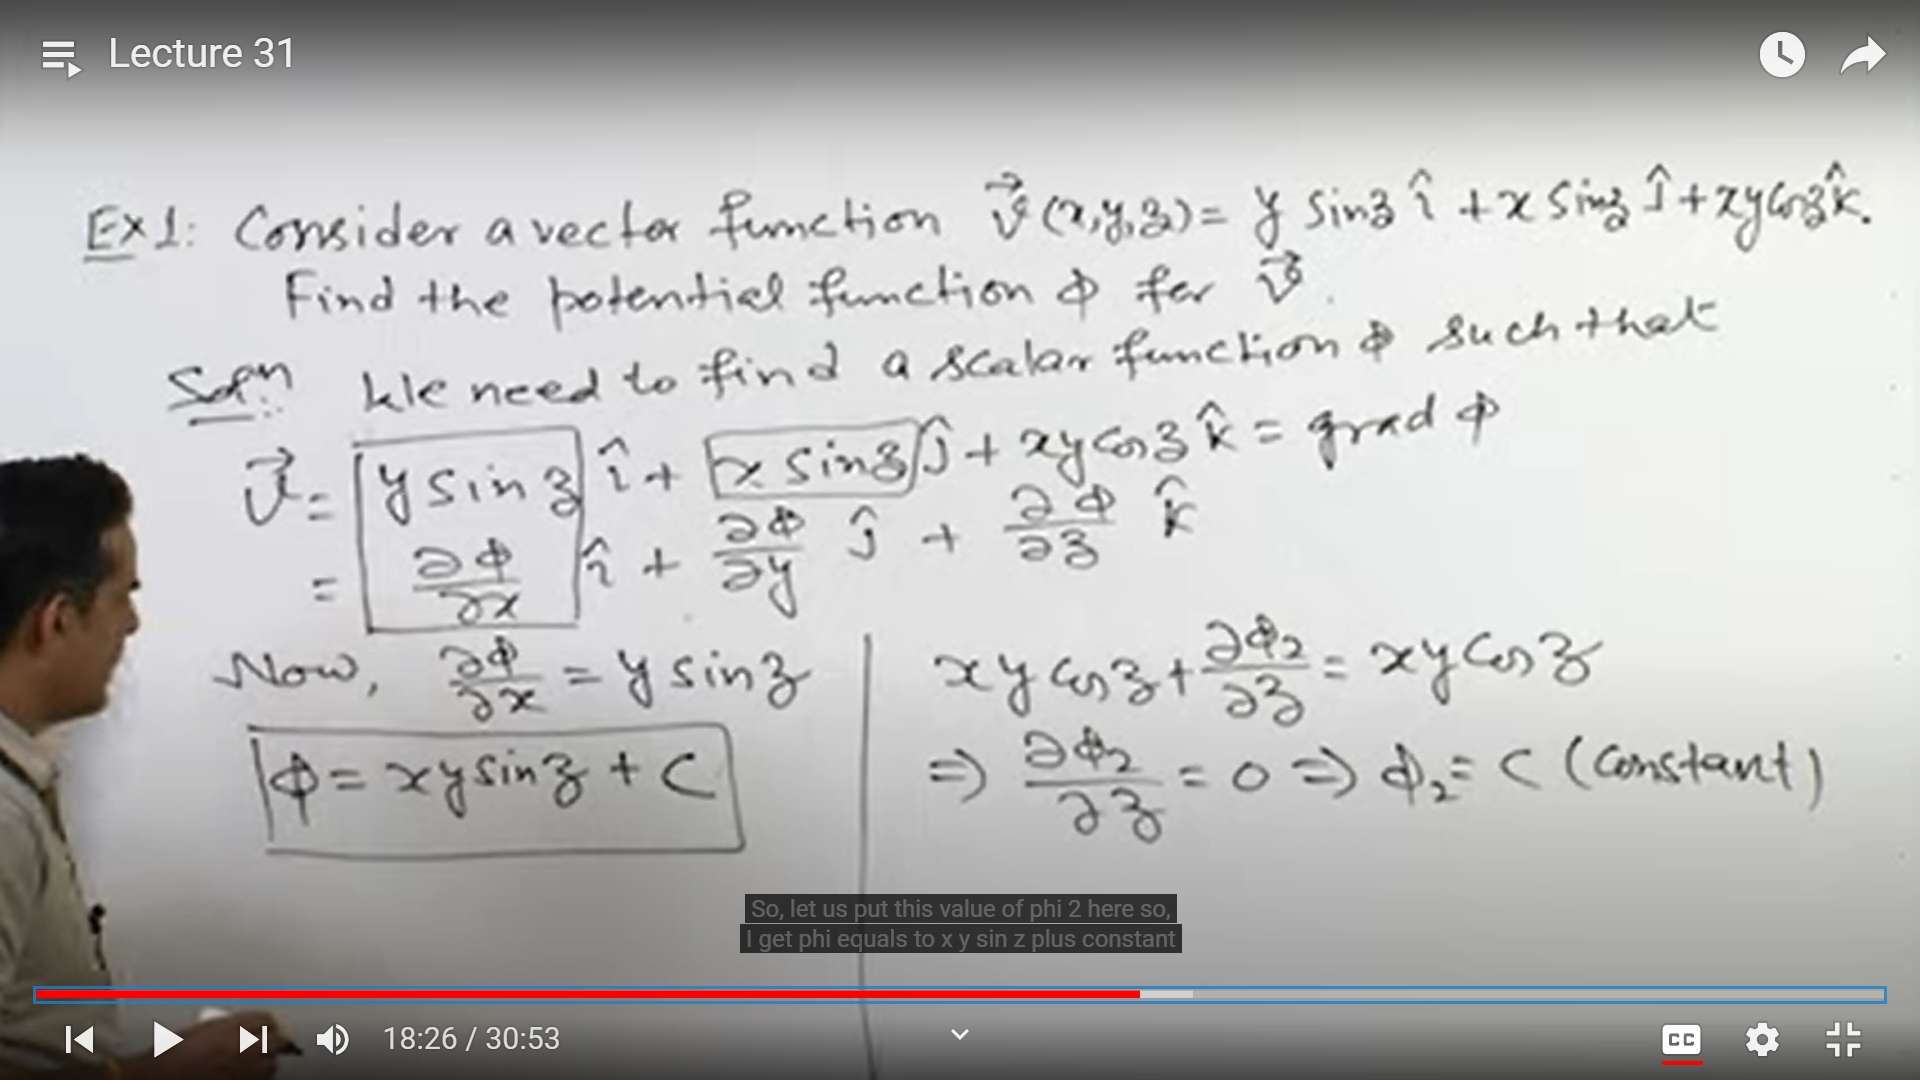 Lecture 31
Ex1: Consider a vector function v⃗(x,y,z) = y sinz î + x sinz ĵ + xy cosz k̂.
Find the potential function ϕ for v⃗.
Solⁿ: We need to find a scalar function ϕ such that
v⃗ = y sin z î + x sinz ĵ + xy cosz k̂ = grad ϕ
= ∂ϕ/∂x î + ∂ϕ/∂y ĵ + ∂ϕ/∂z k̂
Now, ∂ϕ/∂x = y sinz
ϕ = xy sinz + C
xy cosz + ∂ϕ₂/∂z = xy cosz
⇒ ∂ϕ₂/∂z = 0 ⇒ ϕ₂ = C (constant)
So, let us put this value of phi 2 here so,
I get phi equals to x y sin z plus constant
18:26 / 30:53
CC